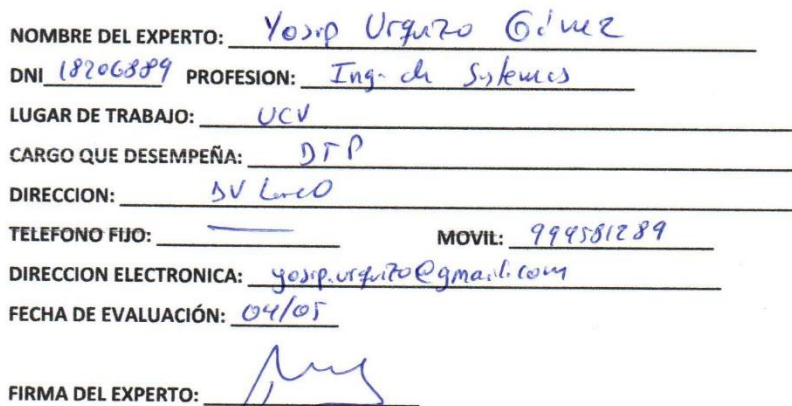 NOMBRE DEL EXPERTO: Yosip Urquizo Gómez
DNI 18206889 PROFESION: Ing. de Sistemas
LUGAR DE TRABAJO: UCV
CARGO QUE DESEMPEÑA: DTP
DIRECCION:
TELEFONO FIJO: — MOVIL: 999581289
DIRECCION ELECTRONICA: yosip.urquizo@gmail.com
FECHA DE EVALUACIÓN: 04/05
FIRMA DEL EXPERTO: